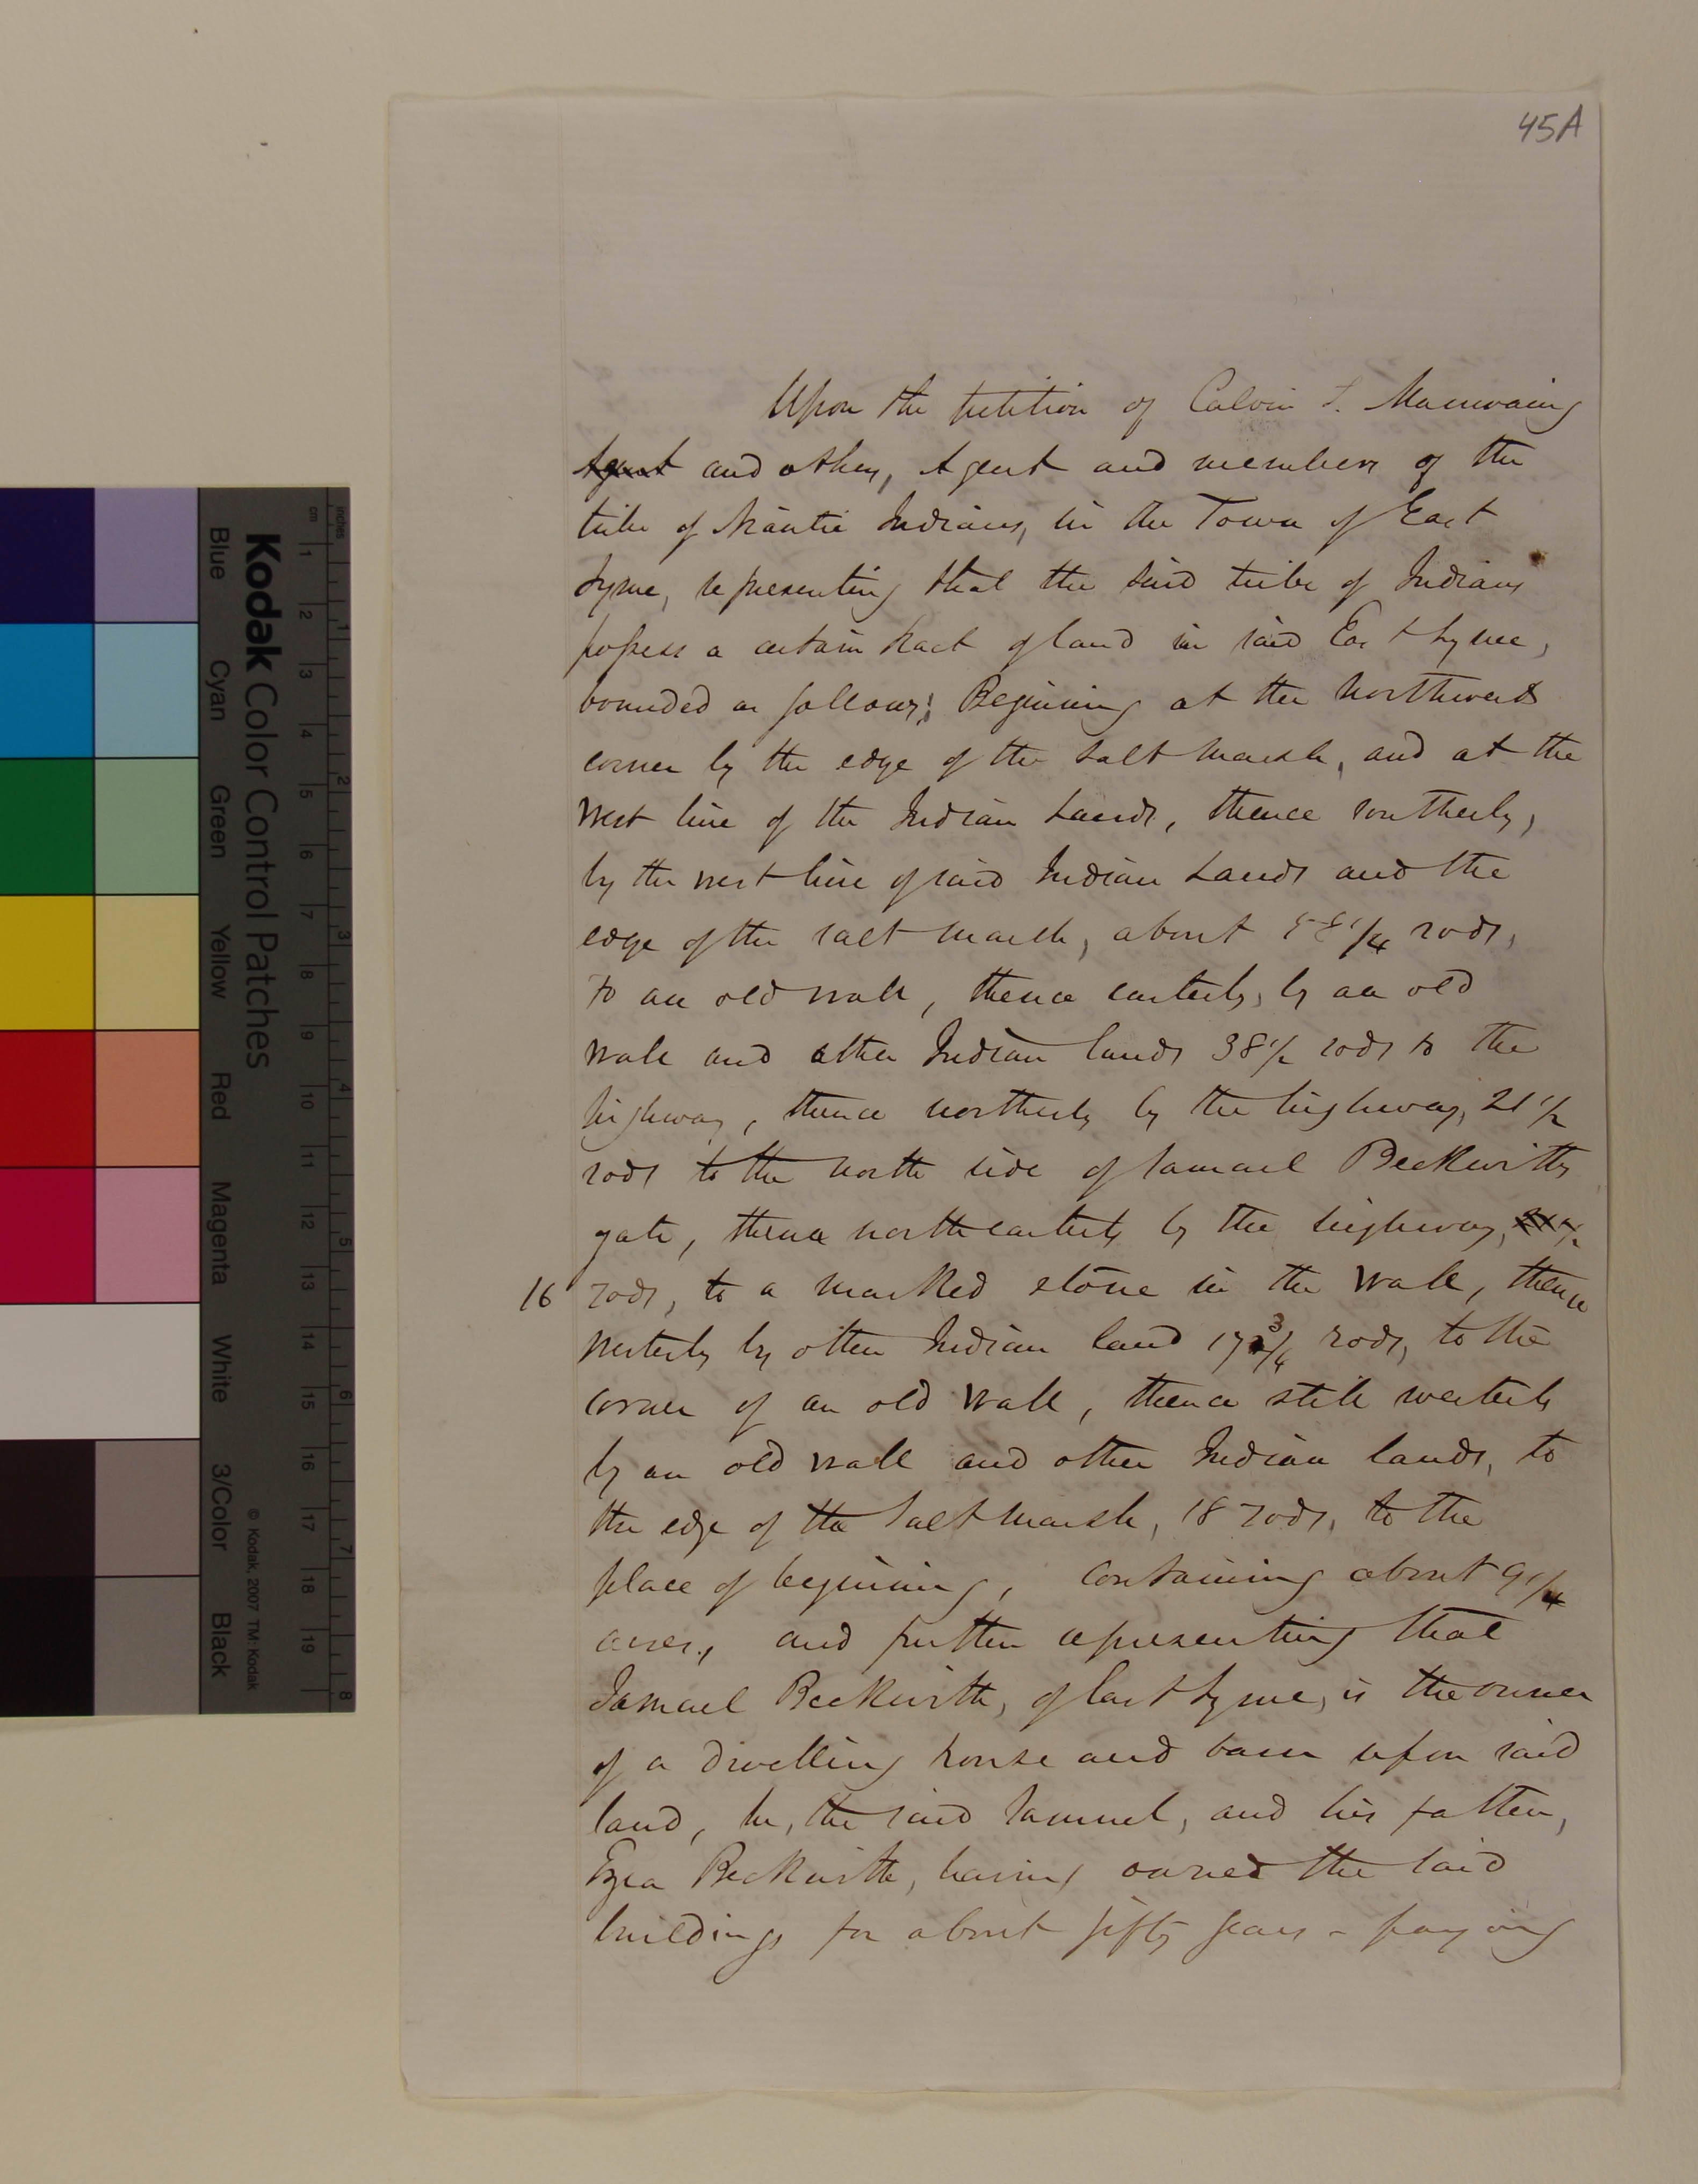 45A
Upon the petition of Calvin S. Manwaring
Agent and others, Agent and members of the
tribe of Niantic Indians, in the Town of East
Lyme, representing that the said tribe of Indians
possess a certain tract of land in said East Lyme,
bounded as follows; Begining at the Northwest
corner by the edge of the salt marsh, and at the
west line of the Indian Lands, thence southerly,
by the west line of said Indian Lands and the
edge of the salt marsh, about 58 1/4 rods,
to an old wall, thence easterly, by an old
wall and other Indian lands 38 1/2 rods to the
highway, thence northerly by the highway, 21 1/2
rods to the north side of Samuel Beckwiths
gate, thence northeasterly by the highway,
16 rods, to a marked stone in the wall, thence
westerly by other Indian land 17 3/4 rods, to the
corner of an old wall, thence still westerly
by an old wall and other Indian lands, to
the edge of the salt marsh, 18 rods, to the
place of begining, containing about 9 1/4
acres, and further representing that
Samuel Beckwith, of East Lyme, is the owner
of a dwelling house and barn upon said
land, he, the said Samuel, and his father,
Ezra Beckwith, having owned the said
buildings for about fifty years - paying
inches
cm
1 2 3 4 5 6 7 8 9 10 11 12 13 14 15 16 17 18 19
1 2 3 4 5 6 7 8
Kodak Color Control Patches
© Kodak, 2007 TM: Kodak
Blue Cyan Green Yellow Red Magenta White 3/Color Black